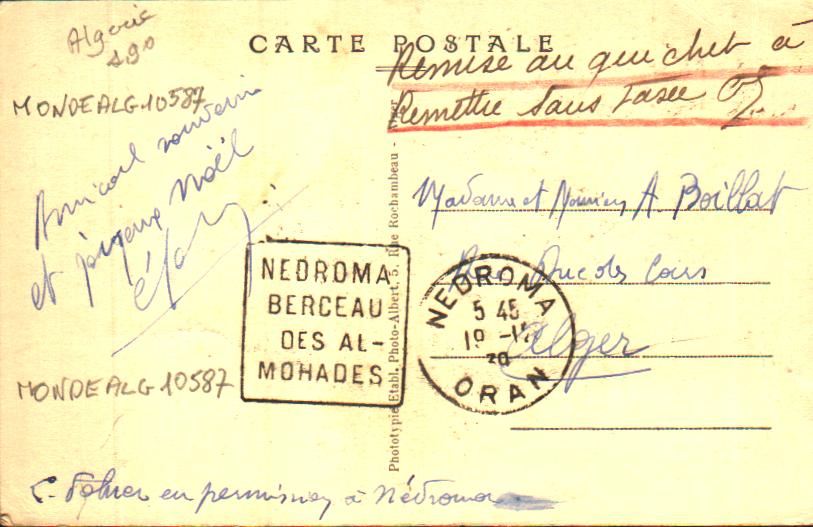 Algerie
190
CARTE POSTALE
Remise au guichet à
Remettre sans taxe
MONDEALG10587
Amical souvenir
et joyeux Noël
Madame et Monsieur A. Boillat
Rue Ducos Cours
Alger
NEDROMA
BERCEAU
DES AL-
MOHADES
NEDROMA
5 45
19 -12
30
ORAN
MONDEALG10587
Phototypie Etabl. Photo-Albert, 5, Rue Rochambeau - Alger
en permission à Nédroma